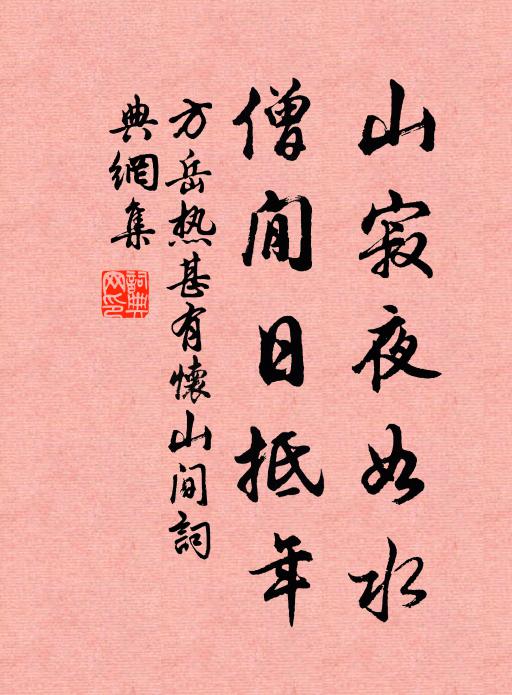 山寂夜如水
僧閒日抵年
方岳热甚有懷山间詞
典網集
詞典网印